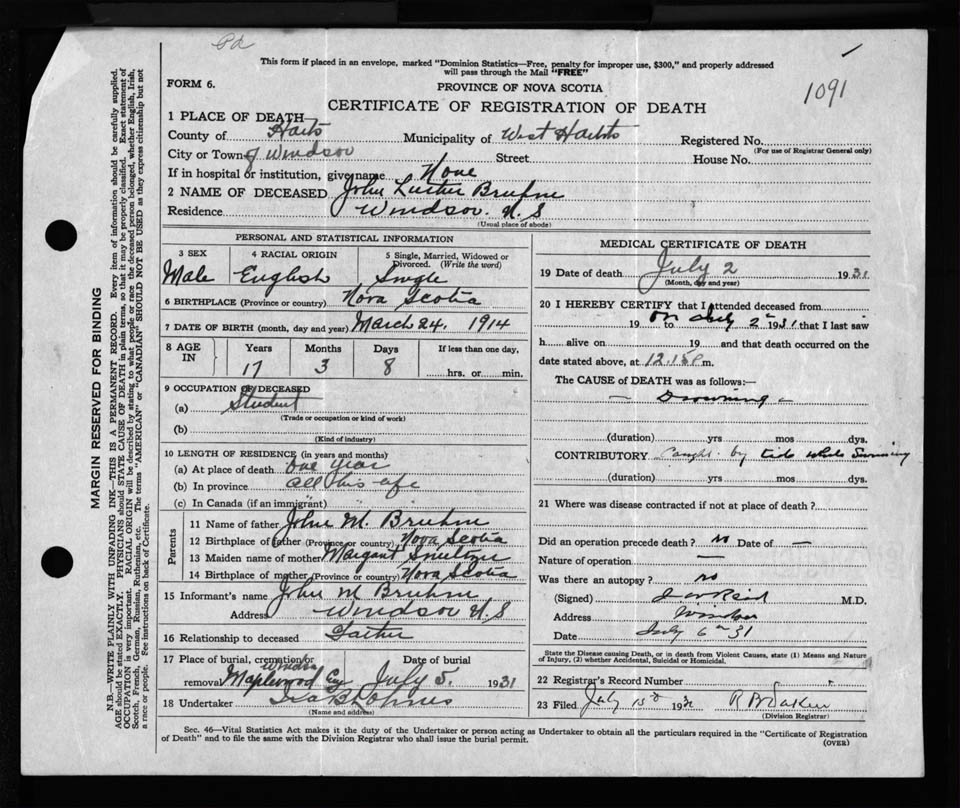 Pd
This form if placed in an envelope, marked "Dominion Statistics—Free, penalty for improper use, $300," and properly addressed
will pass through the Mail "FREE"
FORM 6.
PROVINCE OF NOVA SCOTIA
1091
CERTIFICATE OF REGISTRATION OF DEATH
1 PLACE OF DEATH
County of Hants Municipality of West Hants Registered No.
(For use of Registrar General only)
City or Town of Windsor Street House No.
If in hospital or institution, give name None
2 NAME OF DECEASED John Bruhm
Residence Windsor. N.S
(Usual place of abode)
PERSONAL AND STATISTICAL INFORMATION
3 SEX 4 RACIAL ORIGIN 5 Single, Married, Widowed or
Divorced. (Write the word)
Male English Single
6 BIRTHPLACE (Province or country) Nova Scotia
7 DATE OF BIRTH (month, day and year) March 24. 1914
8 AGE IN Years Months Days If less than one day,
17 3 8 hrs. or min.
9 OCCUPATION OF DECEASED
(a) Student
(Trade or occupation or kind of work)
(b)
(Kind of industry)
10 LENGTH OF RESIDENCE (in years and months)
(a) At place of death one year
(b) In province all his life
(c) In Canada (if an immigrant)
Parents
11 Name of father John M. Bruhm
12 Birthplace of father (Province or country) Nova Scotia
13 Maiden name of mother Margart
14 Birthplace of mother (Province or country) Nova Scotia
15 Informant's name John M Bruhm
Address Windsor N.S
16 Relationship to deceased Father
17 Place of burial, cremation or Date of burial
Windsor
removal Maplewood Cy July 5. 1931
18 Undertaker
(Name and address)
MEDICAL CERTIFICATE OF DEATH
19 Date of death July 2 1931
(Month, day and year)
20 I HEREBY CERTIFY that I attended deceased from
19 to on July 2nd 1931 that I last saw
h alive on 19 and that death occurred on the
date stated above, at 12.15 P m.
The CAUSE of DEATH was as follows:—
— Drowning —
(duration) yrs mos dys.
CONTRIBUTORY Caught by tide while Swimming
(duration) yrs mos. dys.
21 Where was disease contracted if not at place of death?
Did an operation precede death? no Date of —
Nature of operation —
Was there an autopsy? no
(Signed) Reid M.D.
Address Windsor
Date July 6th 31
State the Disease causing Death, or in death from Violent Causes, state (1) Means and Nature
of Injury, (2) whether Accidental, Suicidal or Homicidal.
22 Registrar's Record Number
23 Filed July 193
(Division Registrar)
Sec. 46—Vital Statistics Act makes it the duty of the Undertaker or person acting as Undertaker to obtain all the particulars required in the "Certificate of Registration
of Death" and to file the same with the Division Registrar who shall issue the burial permit.
(OVER)
MARGIN RESERVED FOR BINDING
N.B.—WRITE PLAINLY WITH UNFADING INK—THIS IS A PERMANENT RECORD. Every item of information should be carefully supplied.
AGE should be stated EXACTLY. PHYSICIANS should STATE CAUSE OF DEATH in plain terms, so that it may be properly classified. Exact statement of
OCCUPATION is very important. RACIAL ORIGIN will be described by stating to what people or race the deceased person belonged, whether English, Irish,
Scotch, French, German, Russian, Ruthenian, etc. The terms "AMERICAN" or "CANADIAN" SHOULD NOT BE USED as they express citizenship but not
a race or people. See instructions on back of Certificate.